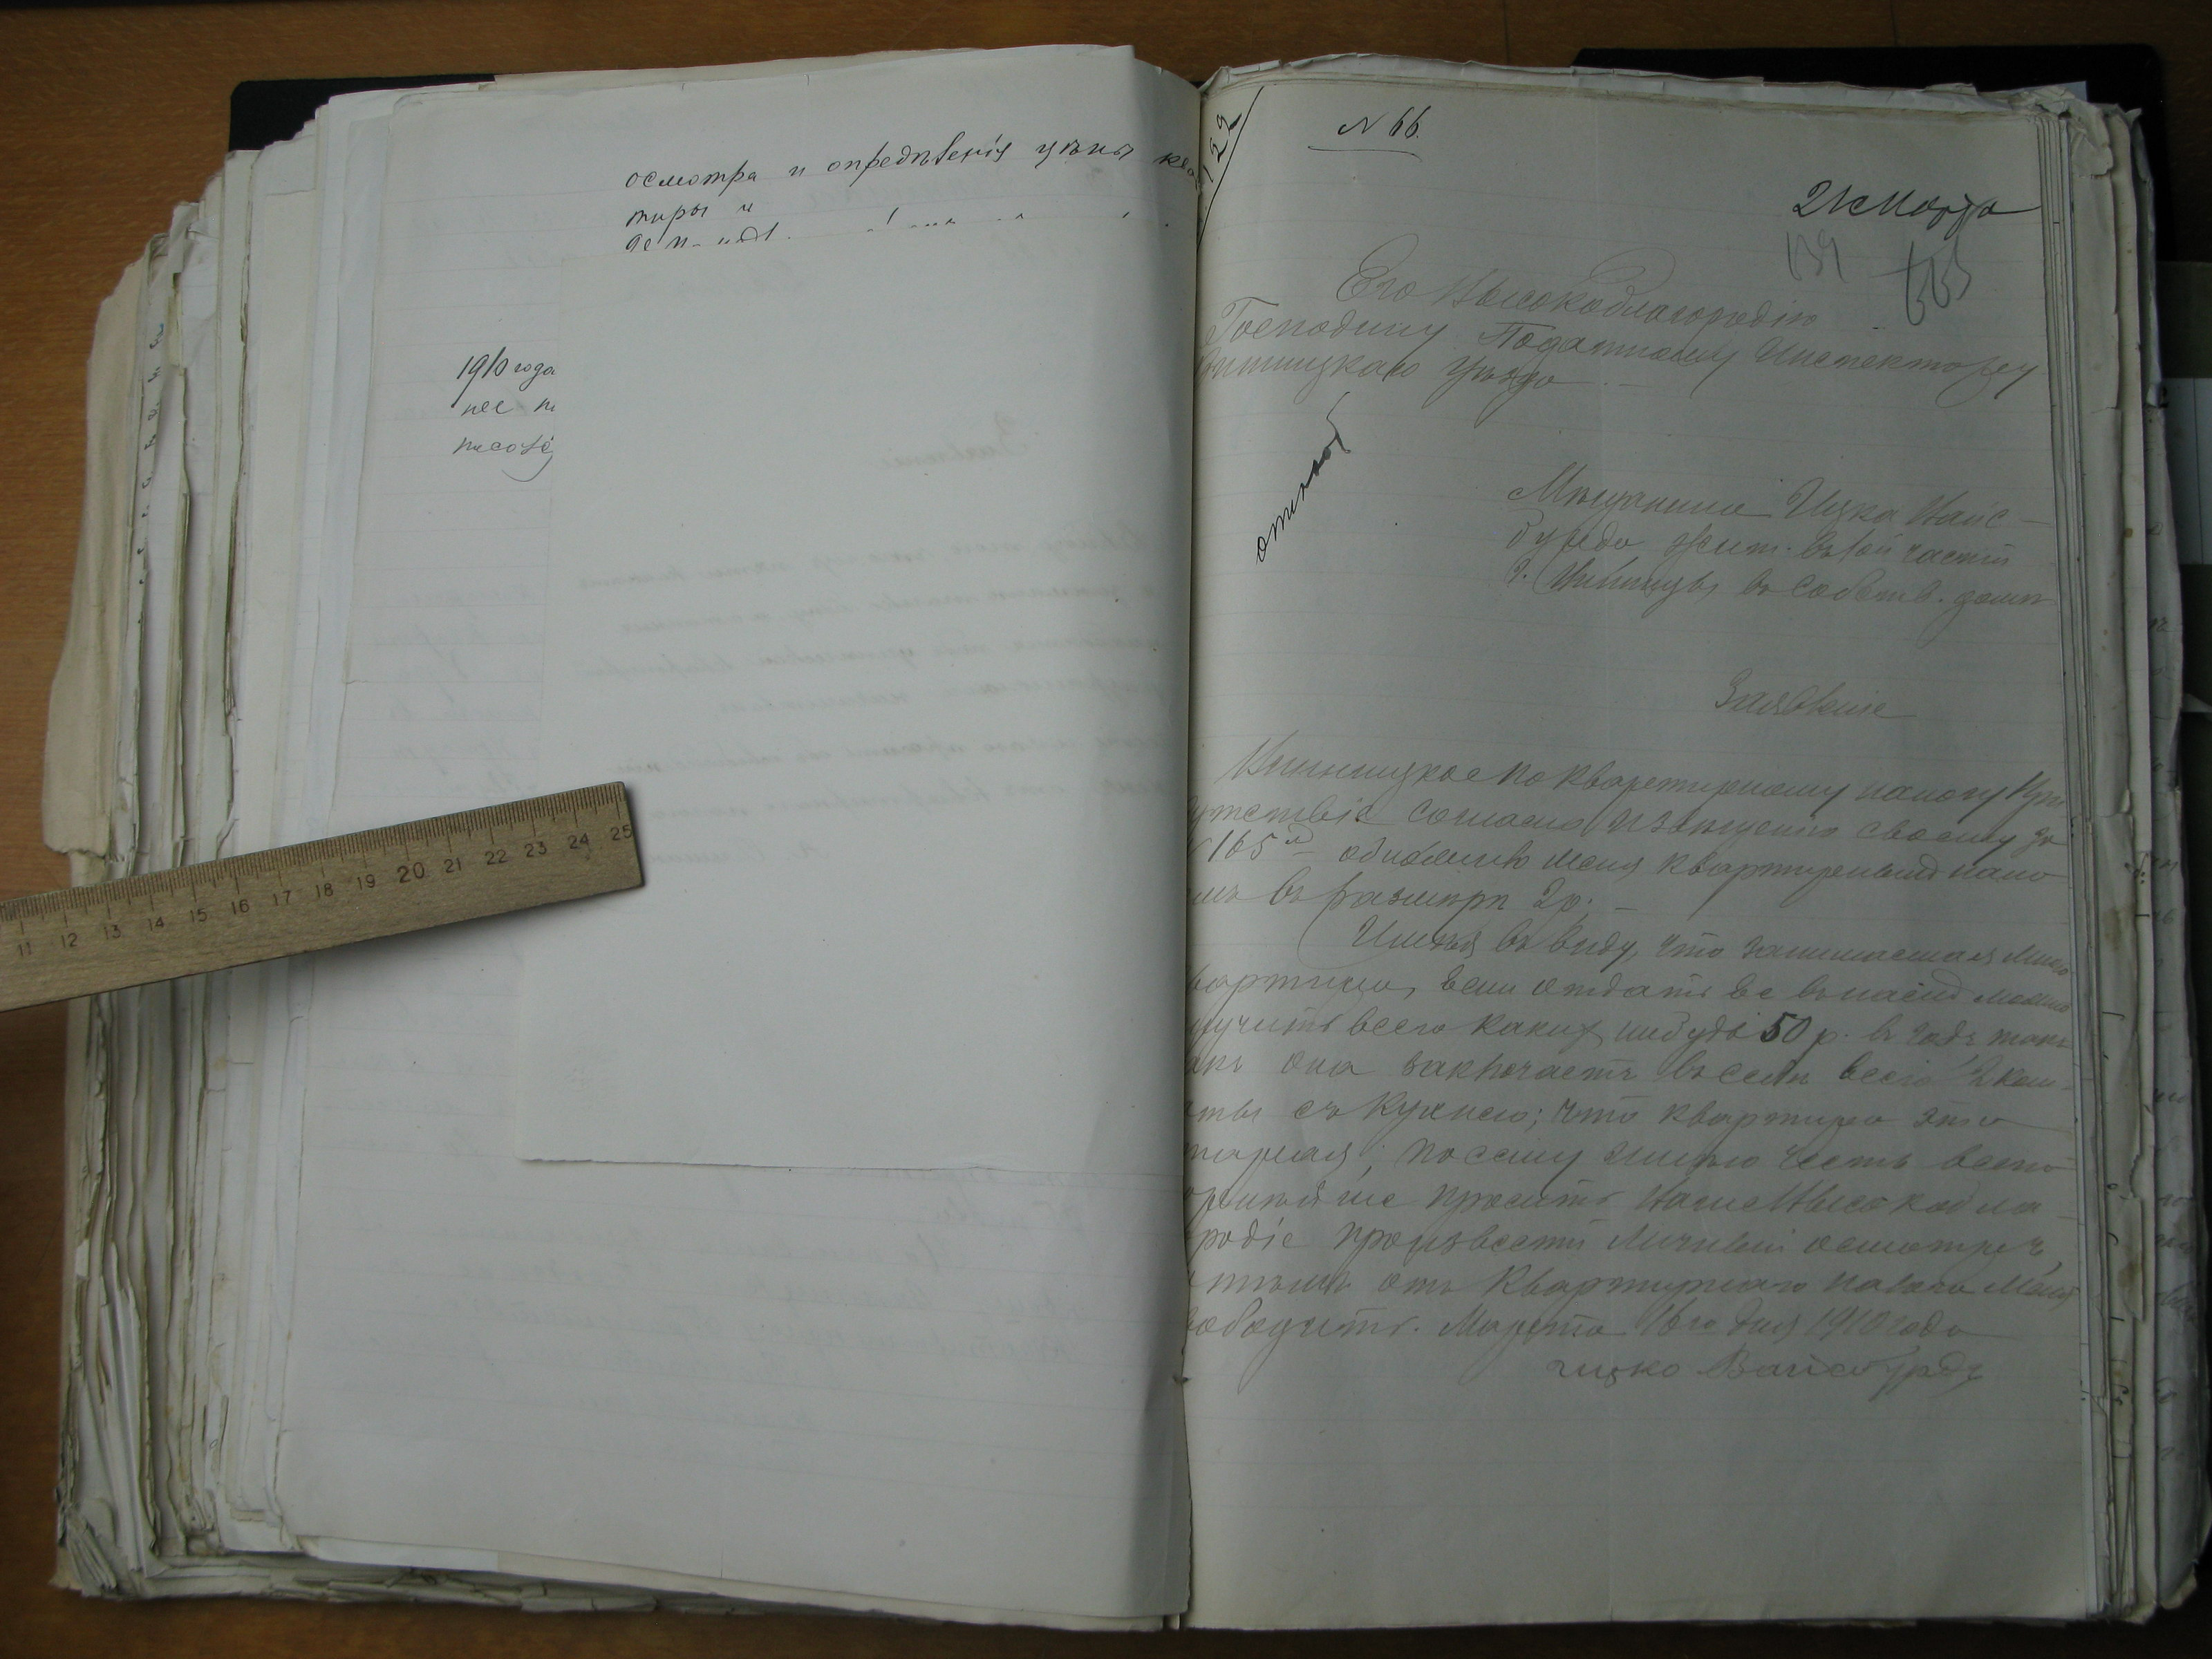 осмотра и опредѣленія цѣны ква
тиры и
1910 года
нее
№ 66.
21 Марта
139
Его Высокоблагородію
Господину Податному Инспектору
Винницкаго Уѣзда
Мѣщанина Ицка Вайс-
бурда жит. въ 1ой части
г. Винницы въ собств. домѣ
Заявленіе
Винницкое по квартирному налогу При
сутствіе согласно извѣщенію своему за
№ 165 обложило меня квартирнымъ нало
въ размѣрѣ 2 р.
Имѣя въ виду, что занимаемая мною
квартира, если отдать ее въ наемъ можно
лучить всего какихъ нибудь 50 р. въ годъ такъ
какъ она заключаетъ въ себѣ всего 2 ком-
наты съ кухнею; что квартира эта
старая; посему имѣю честь всепо
корнѣйше просить Ваше Высокобла-
родіе произвести личный осмотръ
отъ квартирнаго налога меня
вободить. Марта 16го дня 1910 года
ицко Вайсбурдъ
11 12 13 14 15 16 17 18 19 20 21 22 23 24 25